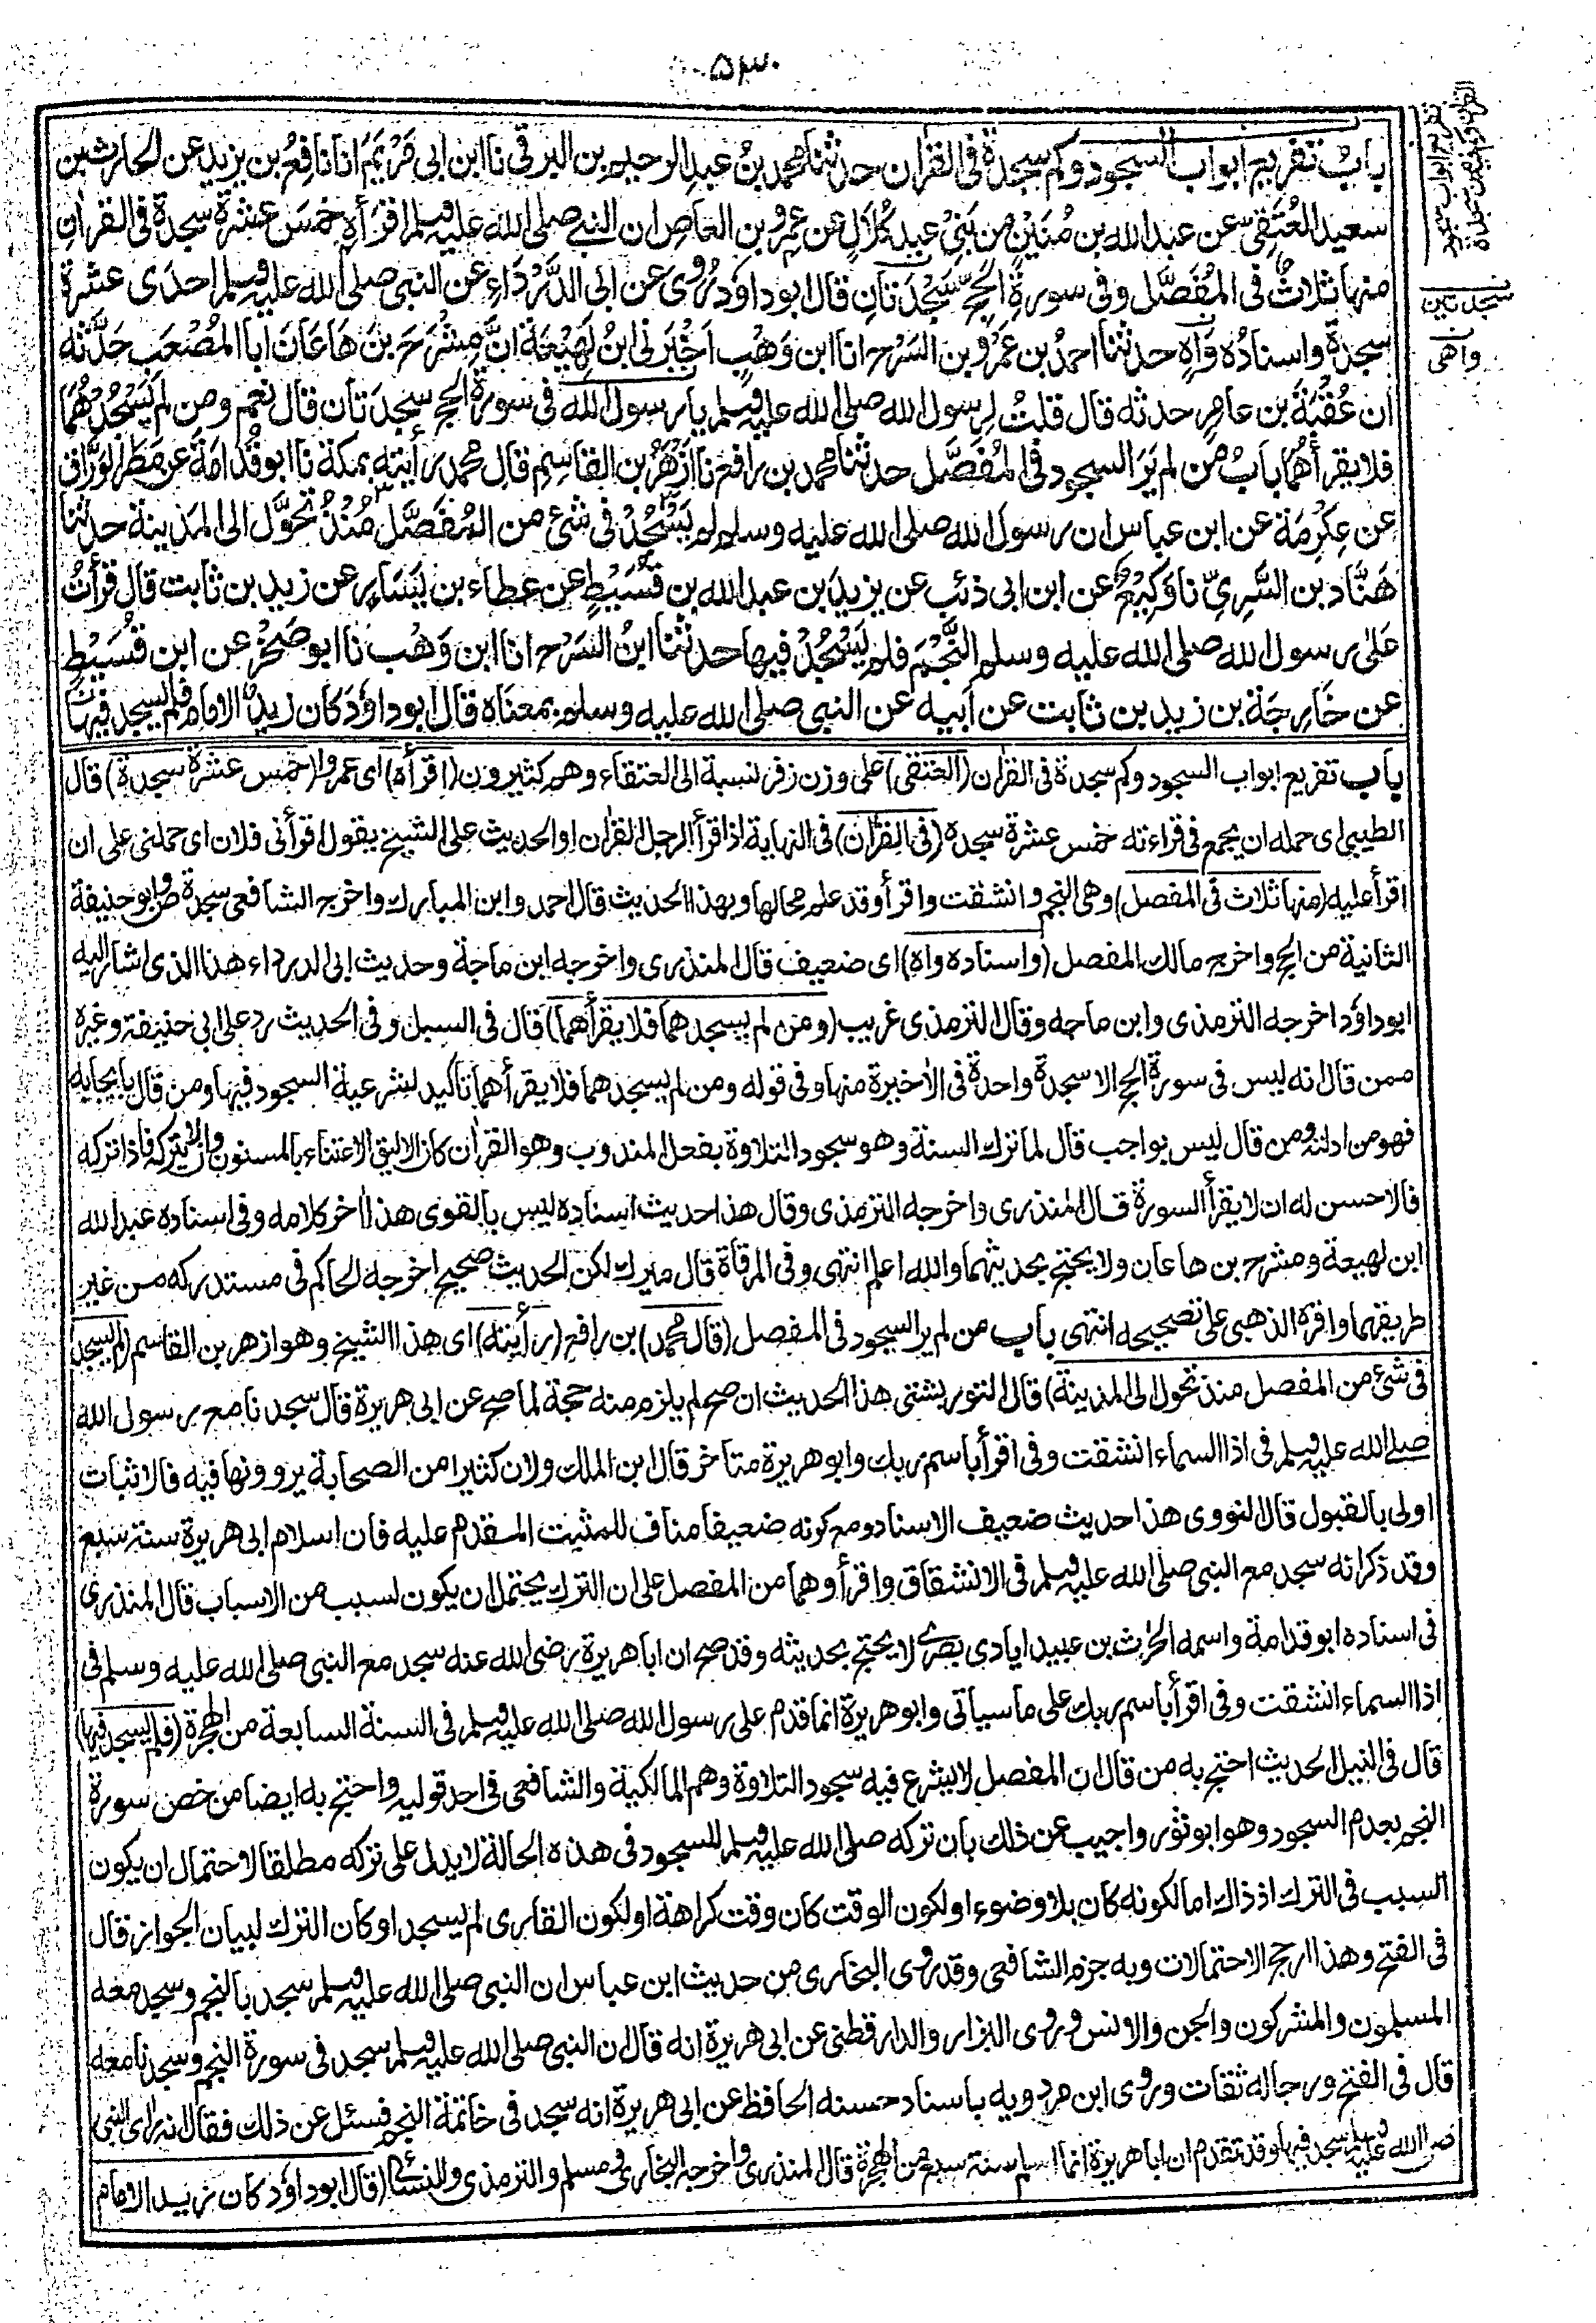 ٥٣٠
باب تفريع ابواب السجود وكم سجدة في القرآن حدثنا محمد بن عبد الرحيم بن البرقي نا ابن ابي مريم انا نافع بن يزيد عن الحارث بن
سعيد العتقي عن عبد الله بن منين من بني عبد كلال عن عمرو بن العاص ان النبي صلى الله عليه وسلم اقرأه خمس عشرة سجدة في القرآن
منها ثلاث في المفصل وفي سورة الحج سجدتان قال ابو داود روي عن ابي الدرداء عن النبي صلى الله عليه وسلم احدى عشرة
سجدة واسناده واه حدثنا احمد بن عمرو بن السرح انا ابن وهب اخبرني ابن لهيعة ان مشرح بن هاعان ابا المصعب حدثه
ان عقبة بن عامر حدثه قال قلت لرسول الله صلى الله عليه وسلم يا رسول الله في سورة الحج سجدتان قال نعم ومن لم يسجدهما
فلا يقرأهما باب من لم ير السجود في المفصل حدثنا محمد بن رافع نا ازهر بن القاسم قال محمد رأيته بمكة نا ابو قدامة عن مطر الوراق
عن عكرمة عن ابن عباس ان رسول الله صلى الله عليه وسلم لم يسجد في شئ من المفصل منذ تحول الى المدينة حدثنا
هناد بن السري نا وكيع عن ابن ابي ذئب عن يزيد بن عبد الله بن قسيط عن عطاء بن يسار عن زيد بن ثابت قال قرأت
على رسول الله صلى الله عليه وسلم النجم فلم يسجد فيها حدثنا ابن السرح انا ابن وهب نا ابو صخر عن ابن قسيط
عن خارجة بن زيد بن ثابت عن ابيه عن النبي صلى الله عليه وسلم بمعناه قال ابو داود كان زيد الامام فلم يسجد فيها
باب تفريع ابواب السجود وكم سجدة في القرآن (العتقي) على وزن زفر نسبة الى العتقاء وهم كثيرون (اقرأه) اي عمروا (خمس عشرة سجدة) قال
الطيبي اي حمله ان يجمع في قراءته خمس عشرة سجدة (في القرآن) في النهاية اذا قرأ الرجل القرآن او الحديث على الشيخ يقول اقرأني فلان اي حملني على ان
اقرأ عليه (منها ثلاث في المفصل) وهي النجم وانشقت واقرأ وقد علم محالها وبهذا الحديث قال احمد وابن المبارك واخرج الشافعي سجدة ص وابو حنيفة
الثانية من الحج واخرج مالك المفصل (واسناده واه) اي ضعيف قال المنذري واخرجه ابن ماجة وحديث ابي الدرداء هذا الذي اشار اليه
ابو داود اخرجه الترمذي وابن ماجه وقال الترمذي غريب (ومن لم يسجدهما فلا يقرأهما) قال في السبل وفي الحديث رد على ابي حنيفة وغيره
ممن قال انه ليس في سورة الحج الا سجدة واحدة في الاخيرة منها وفي قوله ومن لم يسجدهما فلا يقرأهما تاكيد لشرعية السجود فيها ومن قال بايجابه
فهو من ادلته ومن قال ليس بواجب قال لما ترك السنة وهو سجود التلاوة بفعل المندوب وهو القرآن كان الاليق الاعتناء بالمسنون وان لا يتركه فاذا تركه
فالاحسن له ان لا يقرأ السورة قال المنذري واخرجه الترمذي وقال هذا حديث اسناده ليس بالقوي هذا اخر كلامه وفي اسناده عبد الله
ابن لهيعة ومشرح بن هاعان ولا يحتج بحديثهما والله اعلم انتهى وفي المرقاة قال ميرك لكن الحديث صحيح اخرجه الحاكم في مستدركه من غير
طريقهما واقره الذهبي على تصحيحه انتهى باب من لم ير السجود في المفصل (قال محمد) بن رافع (رأيته) اي هذا الشيخ وهو ازهر بن القاسم (لم يسجد
في شئ من المفصل منذ تحول الى المدينة) قال التوربشتي هذا الحديث ان صح لم يلزم منه حجة لما صح عن ابي هريرة قال سجدنا مع رسول الله
صلى الله عليه وسلم في اذا السماء انشقت وفي اقرأ باسم ربك وابو هريرة متأخر قال ابن الملك ولان كثيرا من الصحابة يروونها فيه فالاثبات
اولى بالقبول قال النووي هذا حديث ضعيف الاسناد ومع كونه ضعيفا مناف للمثبت المقدم عليه فان اسلام ابي هريرة سنة سبع
وقد ذكر انه سجد مع النبي صلى الله عليه وسلم في الانشقاق واقرأ وهما من المفصل على ان الترك يحتمل ان يكون لسبب من الاسباب قال المنذري
في اسناده ابو قدامة واسمه الحرث بن عبيد ايادي بصري لا يحتج بحديثه وقد صح ان ابا هريرة رضي الله عنه سجد مع النبي صلى الله عليه وسلم في
اذا السماء انشقت وفي اقرأ باسم ربك على ما سيأتي وابو هريرة انما قدم على رسول الله صلى الله عليه وسلم في السنة السابعة من الهجرة (فلم يسجد فيها)
قال في النيل الحديث احتج به من قال ان المفصل لا يشرع فيه سجود التلاوة وهم المالكية والشافعي في احد قوليه واحتج به ايضا من خص سورة
النجم بعدم السجود وهو ابو ثور واجيب عن ذلك بان تركه صلى الله عليه وسلم للسجود في هذه الحالة لا يدل على تركه مطلقا لاحتمال ان يكون
السبب في الترك اذ ذاك اما لكونه كان بلا وضوء او لكون الوقت كان وقت كراهة او لكون القارى لم يسجد او كان الترك لبيان الجواز قال
في الفتح وهذا ارجح الاحتمالات وبه جزم الشافعي وقد روى البخاري من حديث ابن عباس ان النبي صلى الله عليه وسلم سجد بالنجم وسجد معه
المسلمون والمشركون والجن والانس وروى البزار والدارقطني عن ابي هريرة انه قال ان النبي صلى الله عليه وسلم سجد في سورة النجم وسجدنا معه
قال في الفتح ورجاله ثقات وروى ابن مردويه باسناد حسنه الحافظ عن ابي هريرة انه سجد في خاتمة النجم فسئل عن ذلك فقال انه راى النبي
صلى الله عليه وسلم سجد فيها وقد تقدم ان ابا هريرة انما اسلم سنة سبع من الهجرة قال المنذري واخرجه البخاري ومسلم والترمذي والنسائي (قال ابو داود كان زيد الامام
سجدتين
واهي